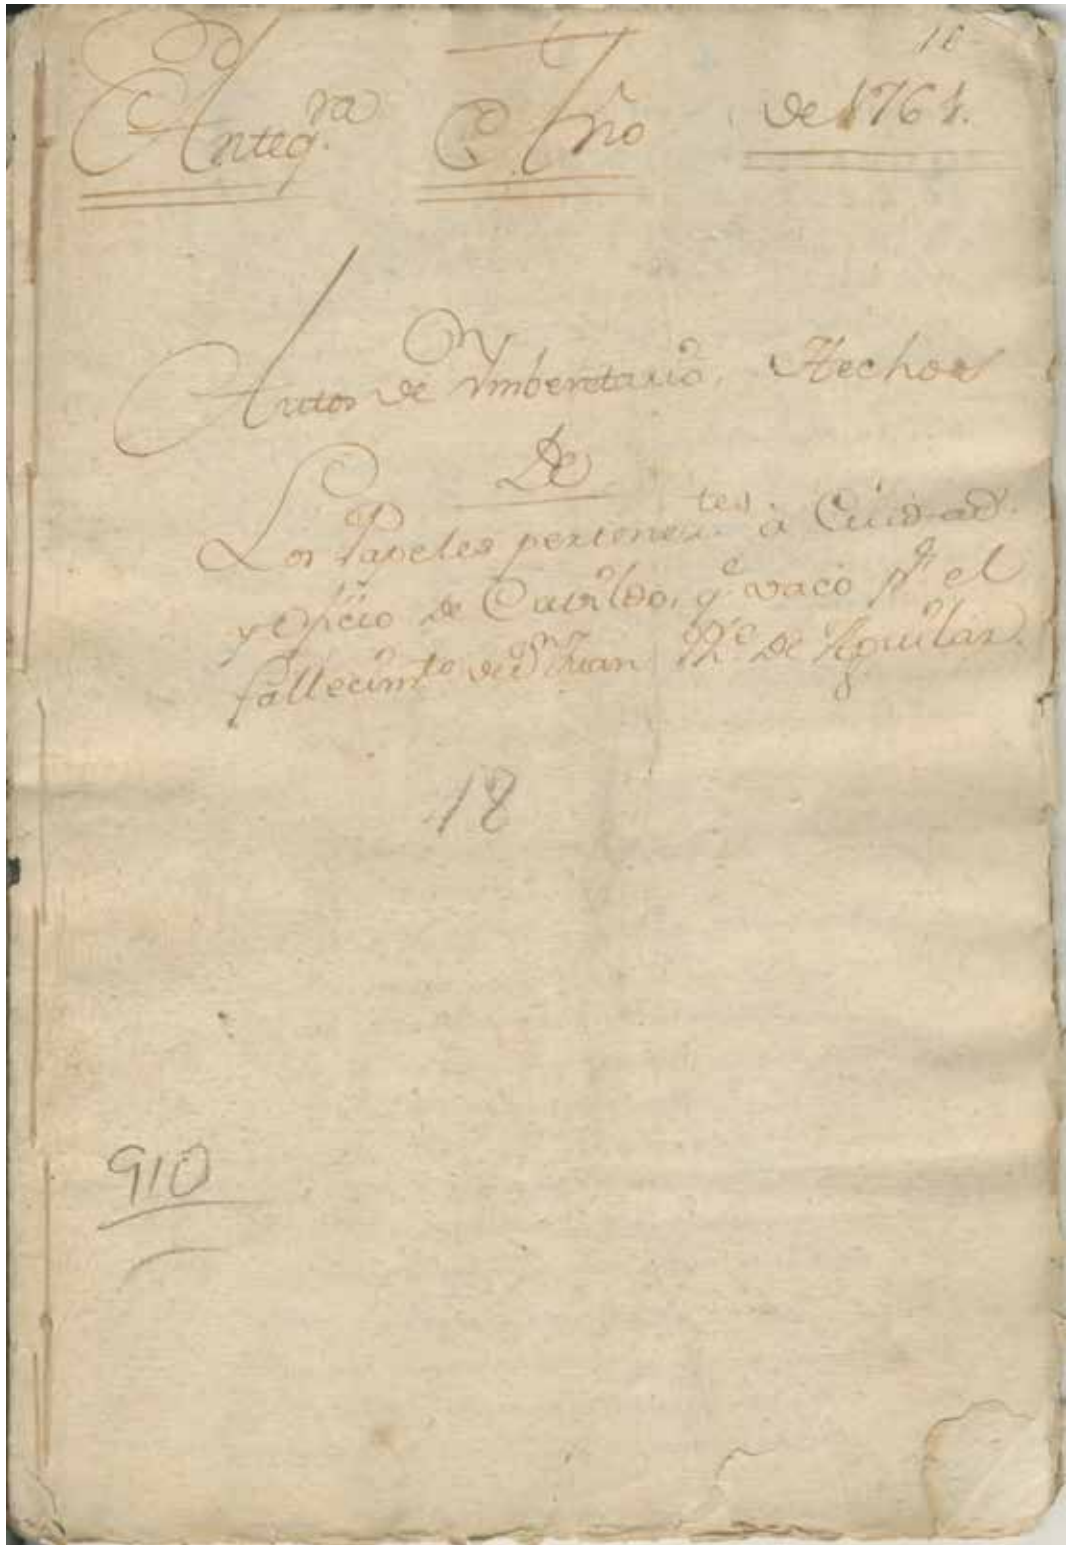 Anteq.ra Año de 1761.
Autos de Ymbentario, Hechos
De
Los Papeles pertenez.tes à Ciudad.
y oficio de Cavildo, q.e vacò p.r el
fallecim.to de D.n Juan Ph.e de Aguilar.
18
910